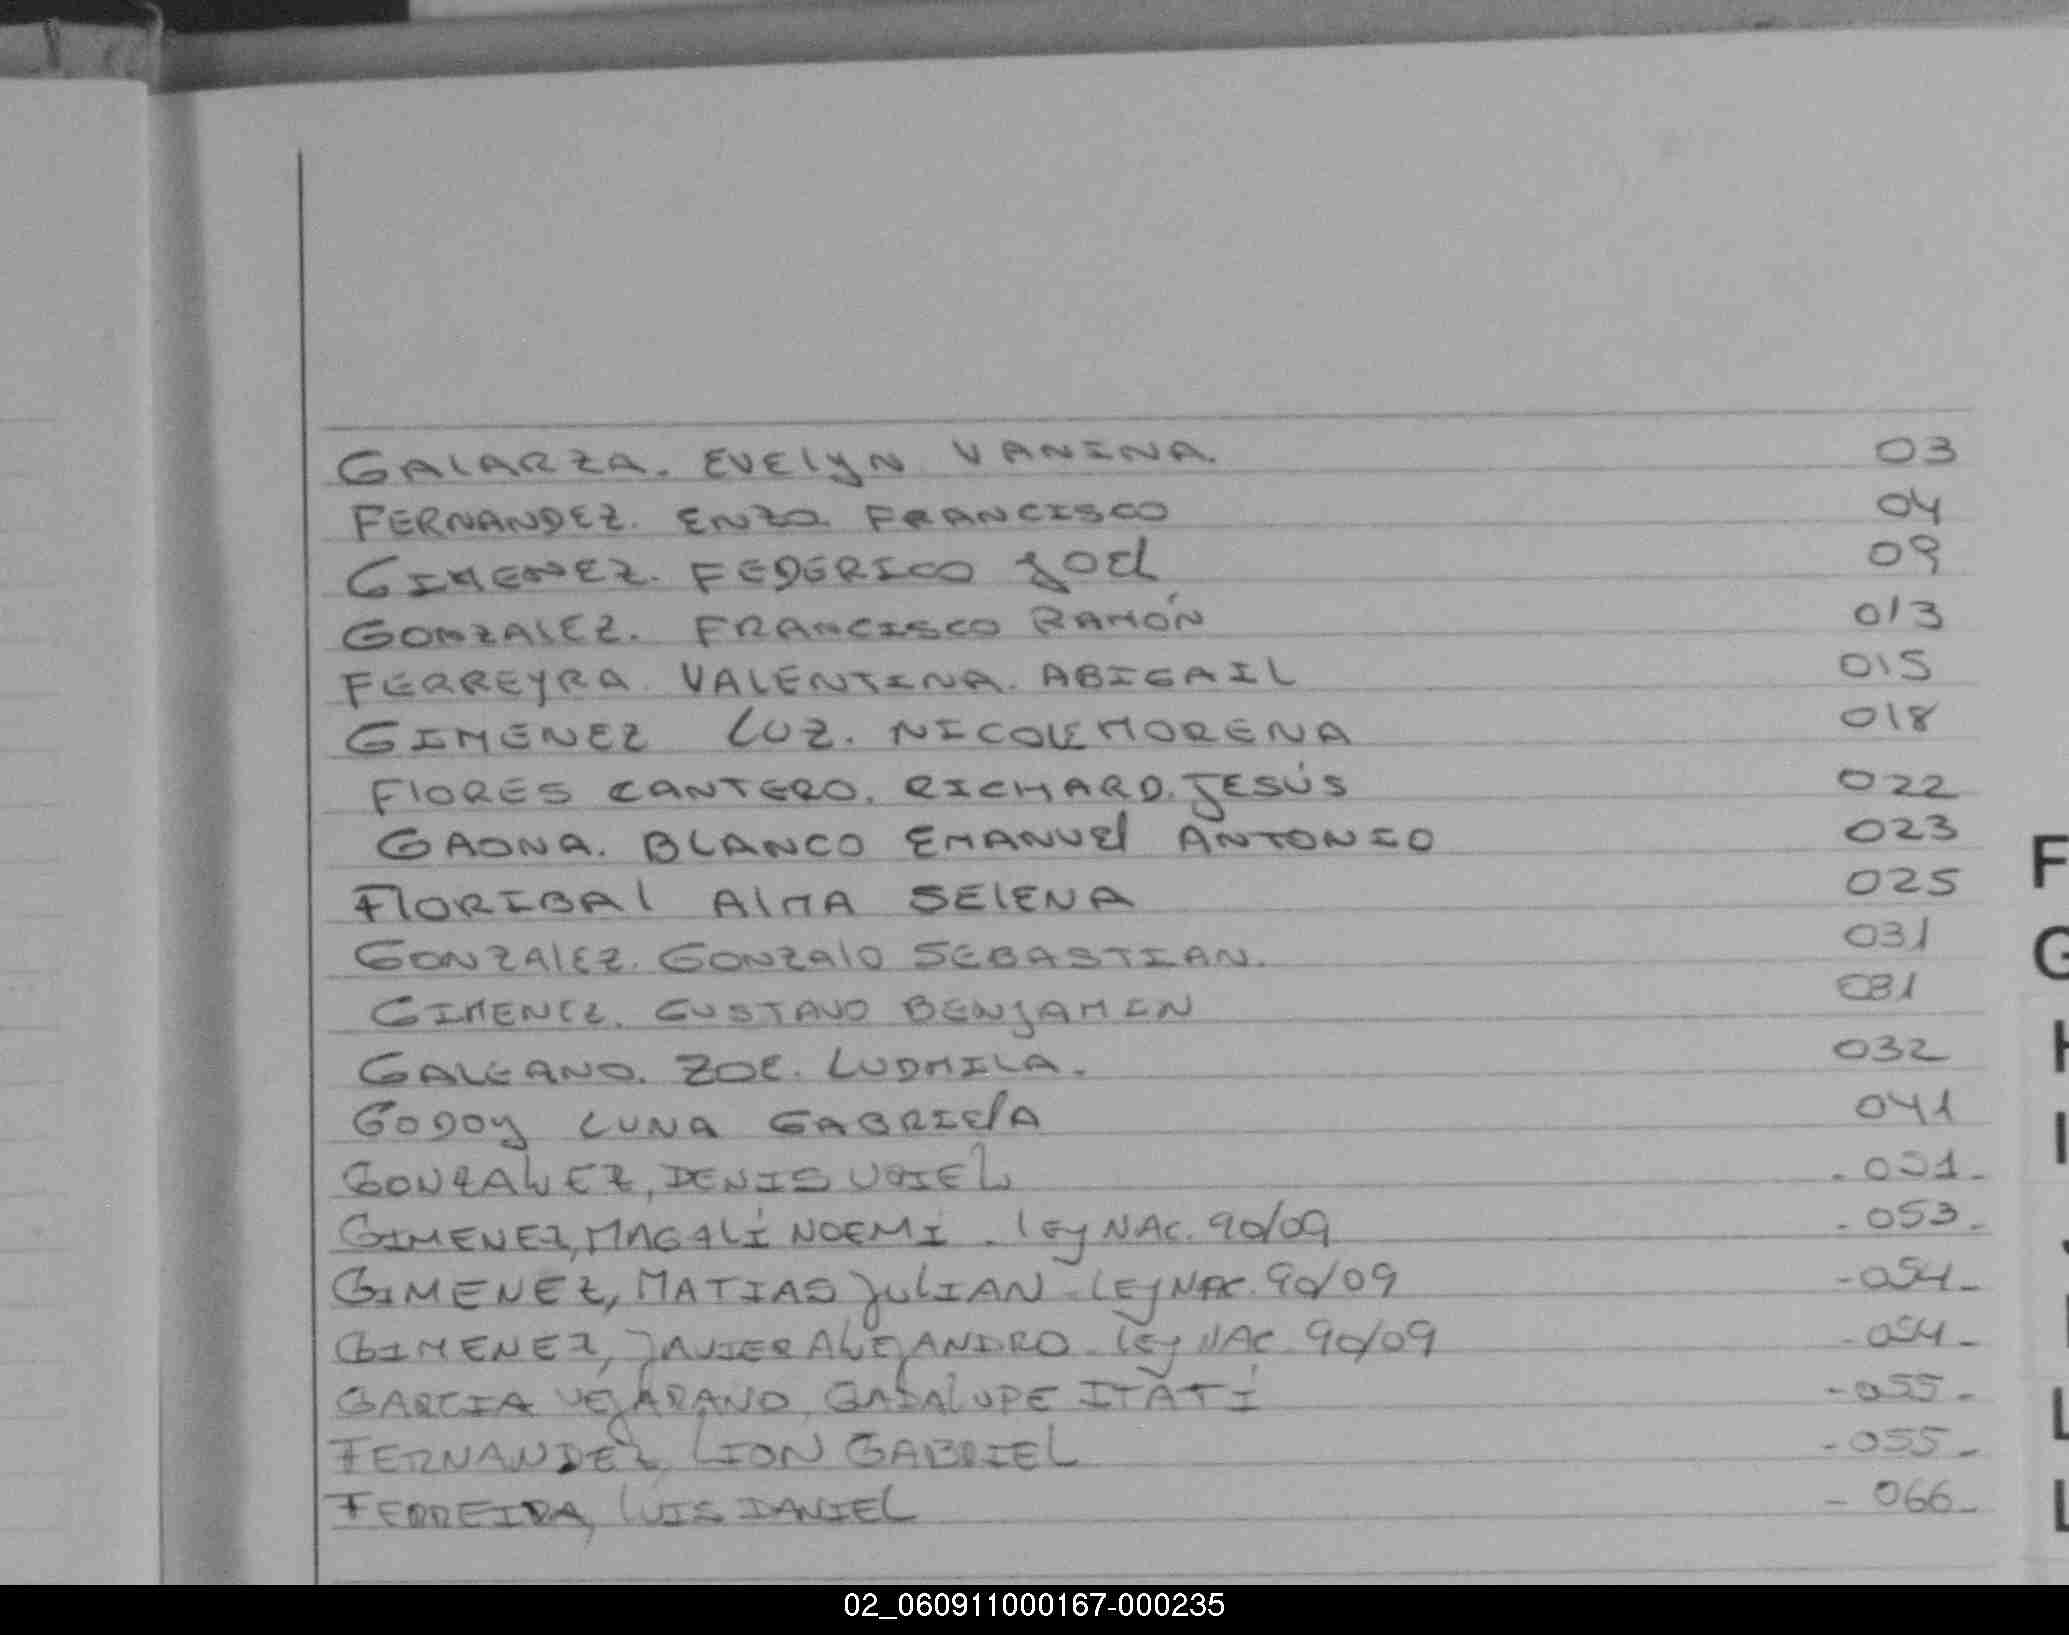 GALARZA. EVELYN VANINA. 03
FERNANDEZ. ENZO. FRANCISCO 04
GIMENEZ. FEDERICO JOEL 09
GONZALEZ. FRANCISCO RAMÓN 013
FERREYRA. VALENTINA. ABIGAIL 015
GIMENEZ LUZ. NICOLE MORENA 018
FLORES CANTERO. RICHARD. JESÚS 022
GAONA. BLANCO EMANUEL ANTONIO 023
FLORIBAL ALMA SELENA 025
GONZALEZ. GONZALO SEBASTIAN. 031
GIMENEZ. GUSTAVO BENJAMIN 031
GALEANO. ZOE. LUDMILA. 032
GODOY LUNA GABRIELA 041
GONZALEZ, DENIS URIEL - 051-
GIMENEZ, MAGALÍ NOEMÍ - LEY NAC. 90/09 - 053-
GIMENEZ, MATIAS JULIAN - LEY NAC. 90/09 - 054-
GIMENEZ, JAVIER ALEJANDRO - LEY NAC. 90/09 - 054-
GARCIA VEJARANO, GADALUPE ITATÍ - 055-
FERNANDEZ, LION GABRIEL - 055-
FERREIRA, LUIS DANIEL - 066-
F
G
H
I
J
L
L
02_060911000167-000235